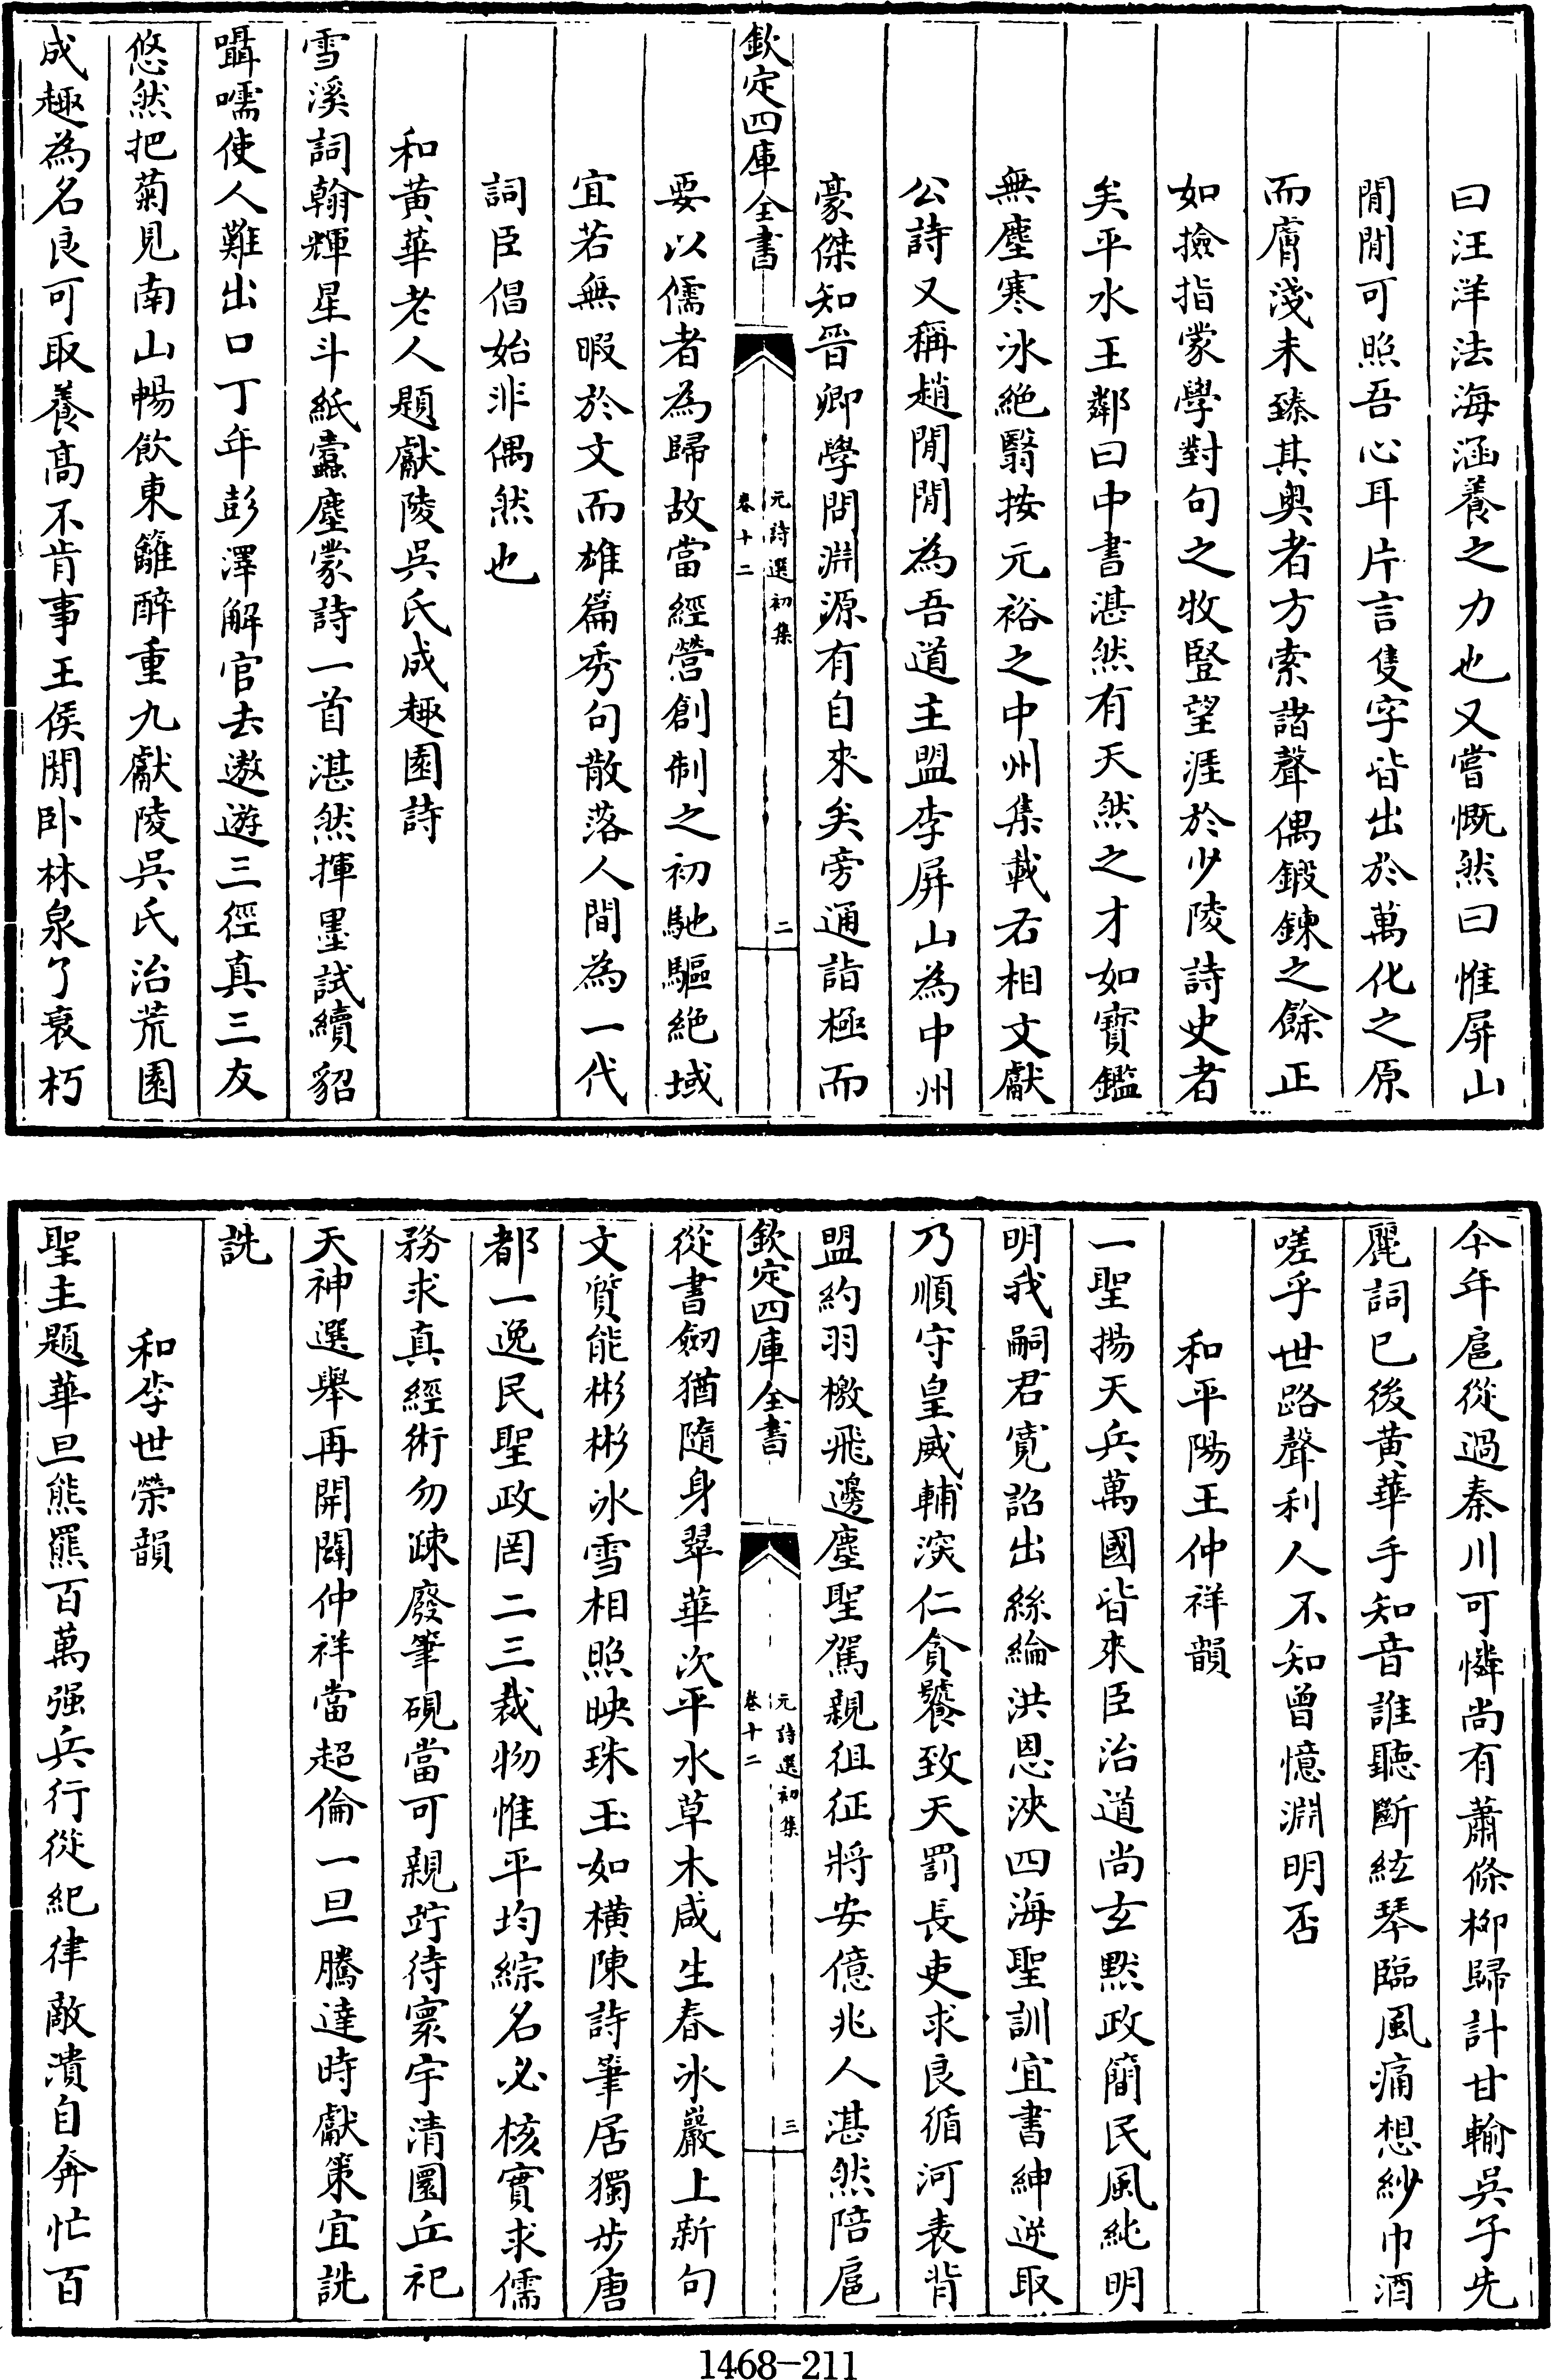 曰汪洋法海涵養之力也又嘗慨然曰惟屏山
閒閒可照吾心耳片言隻字皆出於萬化之原
而膚淺未臻其奥者方索諸聲偶鍛鍊之餘正
如撿指蒙學對句之牧豎望涯於少陵詩史者
矣平水王鄰曰中書湛然有天然之才如寳鑑
無塵寒冰絶翳按元裕之中州集載右相文獻
公詩又稱趙閒閒為吾道主盟李屏山為中州
豪傑知晉卿學問淵源有自來矣旁通詣極而
欽定四庫全書
元詩選初集
卷十二
二
要以儒者為歸故當經營創制之初馳驅絶域
宜若無暇於文而雄篇秀句散落人間為一代
詞臣倡始非偶然也
和黄華老人題獻陵吳氏成趣園詩
雪溪詞翰輝星斗紙蠧塵蒙詩一首湛然揮墨試續貂
囁嚅使人難出口丁年彭澤解官去遨遊三徑真三友
悠然把菊見南山暢飲東籬醉重九獻陵吳氏治荒園
成趣為名良可取養高不肯事王侯閒卧林泉了衰朽
今年扈從過秦川可憐尚有蕭條柳歸計甘輸吳子先
麗詞已後黄華手知音誰聽斷絃琴臨風痛想紗巾酒
嗟乎世路聲利人不知曾憶淵明否
和平陽王仲祥韻
一聖揚天兵萬國皆來臣治道尚玄黙政簡民風純明
明我嗣君寛詔出絲綸洪恩浹四海聖訓宜書紳逆取
乃順守皇威輔深仁貪饕致天罰長吏求良循河表背
盟約羽檄飛邊塵聖駕親徂征將安億兆人湛然陪扈
欽定四庫全書
元詩選初集
卷十二
三
從書劒猶隨身翠華次平水草木咸生春冰巖上新句
文質能彬彬冰雪相照映珠玉如横陳詩筆居獨步唐
都一逸民聖政罔二三裁物惟平均綜名必核實求儒
務求真經術勿疎廢筆硯當可親竚待寰宇清圜丘祀
天神選舉再開闢仲祥當超倫一旦騰達時獻策宜詵
詵
和李世榮韻
聖主題華旦熊羆百萬强兵行從紀律敵潰自奔忙百
1468-211